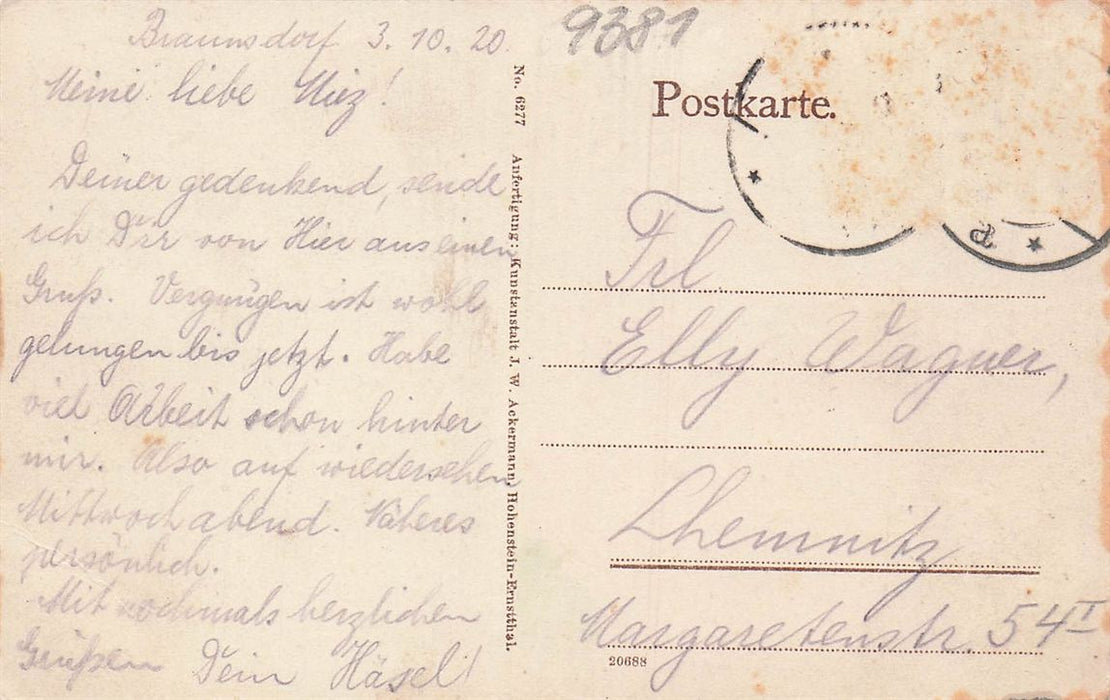 Braunsdorf 3. 10. 20.
Meine liebe Miez!
Deiner gedenkend, sende
ich Dir von Hier aus einen
Gruß. Vergnügen ist wohl
gelungen bis jetzt. Habe
viel Arbeit schon hinter
mir. Also auf wiedersehen
Mittwoch abend. Näheres
persönlich.
Mit nochmals herzlichen
Grüßen Dein Häsel!
No. 6277 Anfertigung: Kunstanstalt J. W. Ackermann, Hohenstein-Ernstthal.
9381
Postkarte.
a
Frl
Elly Wagner,
Chemnitz
Margaretenstr. 54 I
20688